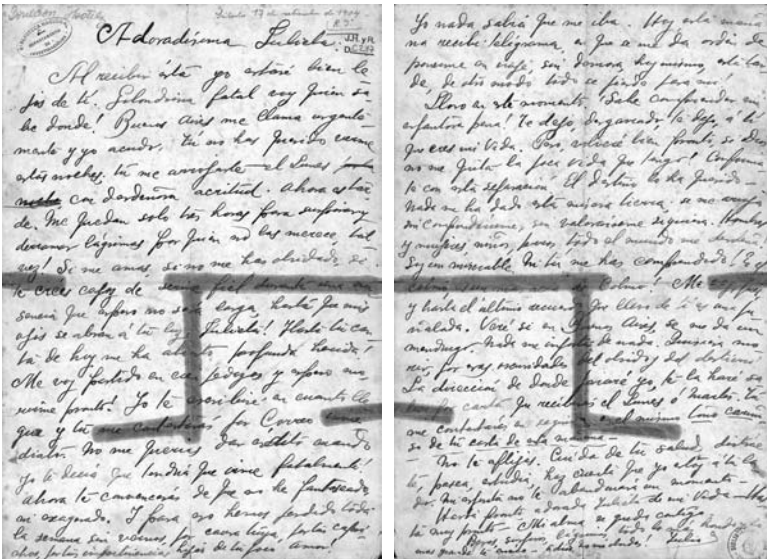 Febrero 17 de setiembre de 1904
Adoradísima Julieta:
Al recibir ésta yo estaré bien le
jos de tí. Golondrina fatal voy quien sa-
be donde! Buenos Aires me llama urgente
mente y yo acudo. Tú no has querido verme
estas noches. Tú me arrojaste el Lunes
con desdeñosa acritud. Ahora es tar
de. Me quedan solo tres horas para
derramar lágrimas por quien no las merece tal
vez! Si me amas, si no me has olvidado, si
te crees capaz de serme fiel durante una au
sencia que espero no será larga, hasta que mis
ojos se abran á tu luz, Julieta! Hasta tu car
ta de hoy me ha abierto profunda herida!
Me voy partido en cien pedazos y espero
reunirme pronto! Yo te escribiré en cuanto lle
gue y tú me contestarás por Correo inme
diato. No me querías dar crédito cuando
yo te decía que tendría que irme fatalmente!
ahora te convencerás de que no he fantaseado
ni exagerado. Y para eso hemos perdido toda
la semana sin vernos, por causa tuya, por tus capri
chos, por tus impertinencias hijas de tu poco amor!
Yo nada sabía que me iba. Hoy esta maña
na recibí telégrama, en que se me da orden de
ponerme en viaje, sin demora, hoy mismo, esta tar
de, de otro modo todo se pierde para mí.
Lloro en este momento. Sabe comprender mi
espantosa pena! Te dejo desgarrado, te dejo, á tí
que eres mi vida. Pero, volveré bien pronto, si Dios
no me quita la poca vida que tengo! Conforma
te con esta separación. El destino lo ha querido —
Nada me ha dado esta mísera tierra, se me arroja
sin compadecerme, sin valorarme siquiera. Hombres
y mujeres, pues todo el mundo me desdeña!
Soy un miserable. Ni tú me has comprendido!
colmo! Me
y hasta el último recuerdo que llevo de tí es una pu
ñalada. Veré si en Buenos Aires, se me da un
mendrugo. Nada me importa de nada.
rer, por esas oscuridades del olvido y del destierro.
La dirección de donde pararé yo, te la haré sa
ber por carta que recibirás el Lunes ó Martes. Tú
me contestarás en seguida en el mismo tono cariño
so de tu carta de esta mañana —
No te aflijas. Cuida de tu salud,
te, pasea, estudia, haz cuenta que yo estoy á tu la
do. Mi espíritu no te abandonará un momento —
Hasta pronto adorada Julieta de mi vida — Has
ta muy pronto — Mi alma se queda contigo.
Besos, suspiros, lágrimas, todo lo más hondo y lo
más grande te envía